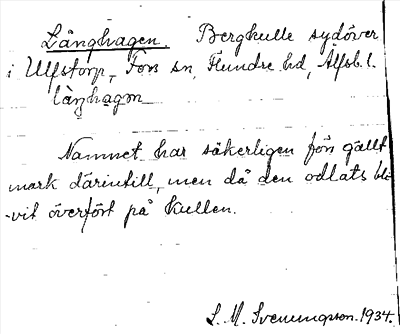 Långhagen. Bergkulle sydöver
i Ulfstorp, Fors sn, Flundre hd, Älfsb. l.
làŋhagən
Namnet har säkerligen förr gällt
mark därintill, men då den odlats bli-
-vit överfört på kullen.
L. M. Svenungsson. 1934.